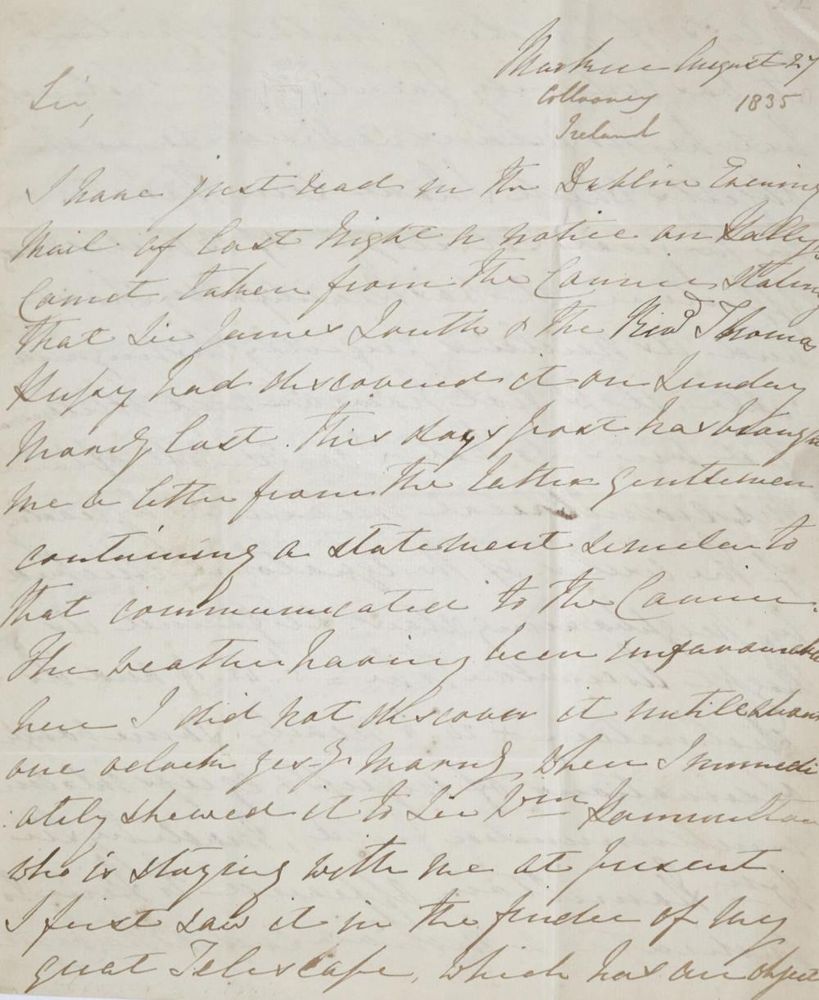 Markree August 27
Collooney 1835
Ireland
Sir,
I have just read in the Dublin Evening
Mail of last night a notice on Hally's
Comet taken from the Courier stating
that Sir James South & the Revd Thomas
Hussey had discovered it on Sunday
Morng last. This days post has brought
me a letter from the latter gentleman
containing a statement similar to
that communicated to the Courier.
The weather having been unfavourable
here I did not discover it until about
one oclock yesty Morng when I immedi
:ately shewed it to Sir Wm Hammilton
who is staying with me at present.
I first saw it in the finder of my
great Telescope, which has an object